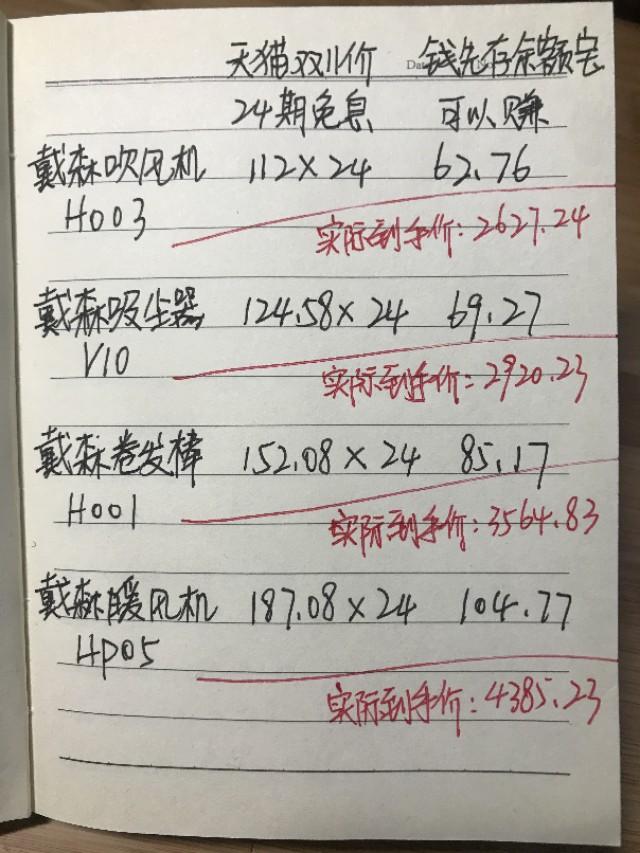 天猫双11价 钱先存余额宝
24期免息 可以赚
戴森吹风机 112×24 62.76
H003
实际到手价:2627.24
戴森吸尘器 124.58×24 69.27
V10
实际到手价:2920.23
戴森卷发棒 152.08×24 85.17
H001
实际到手价:3564.83
戴森暖风机 187.08×24 104.77
HP05
实际到手价:4385.23